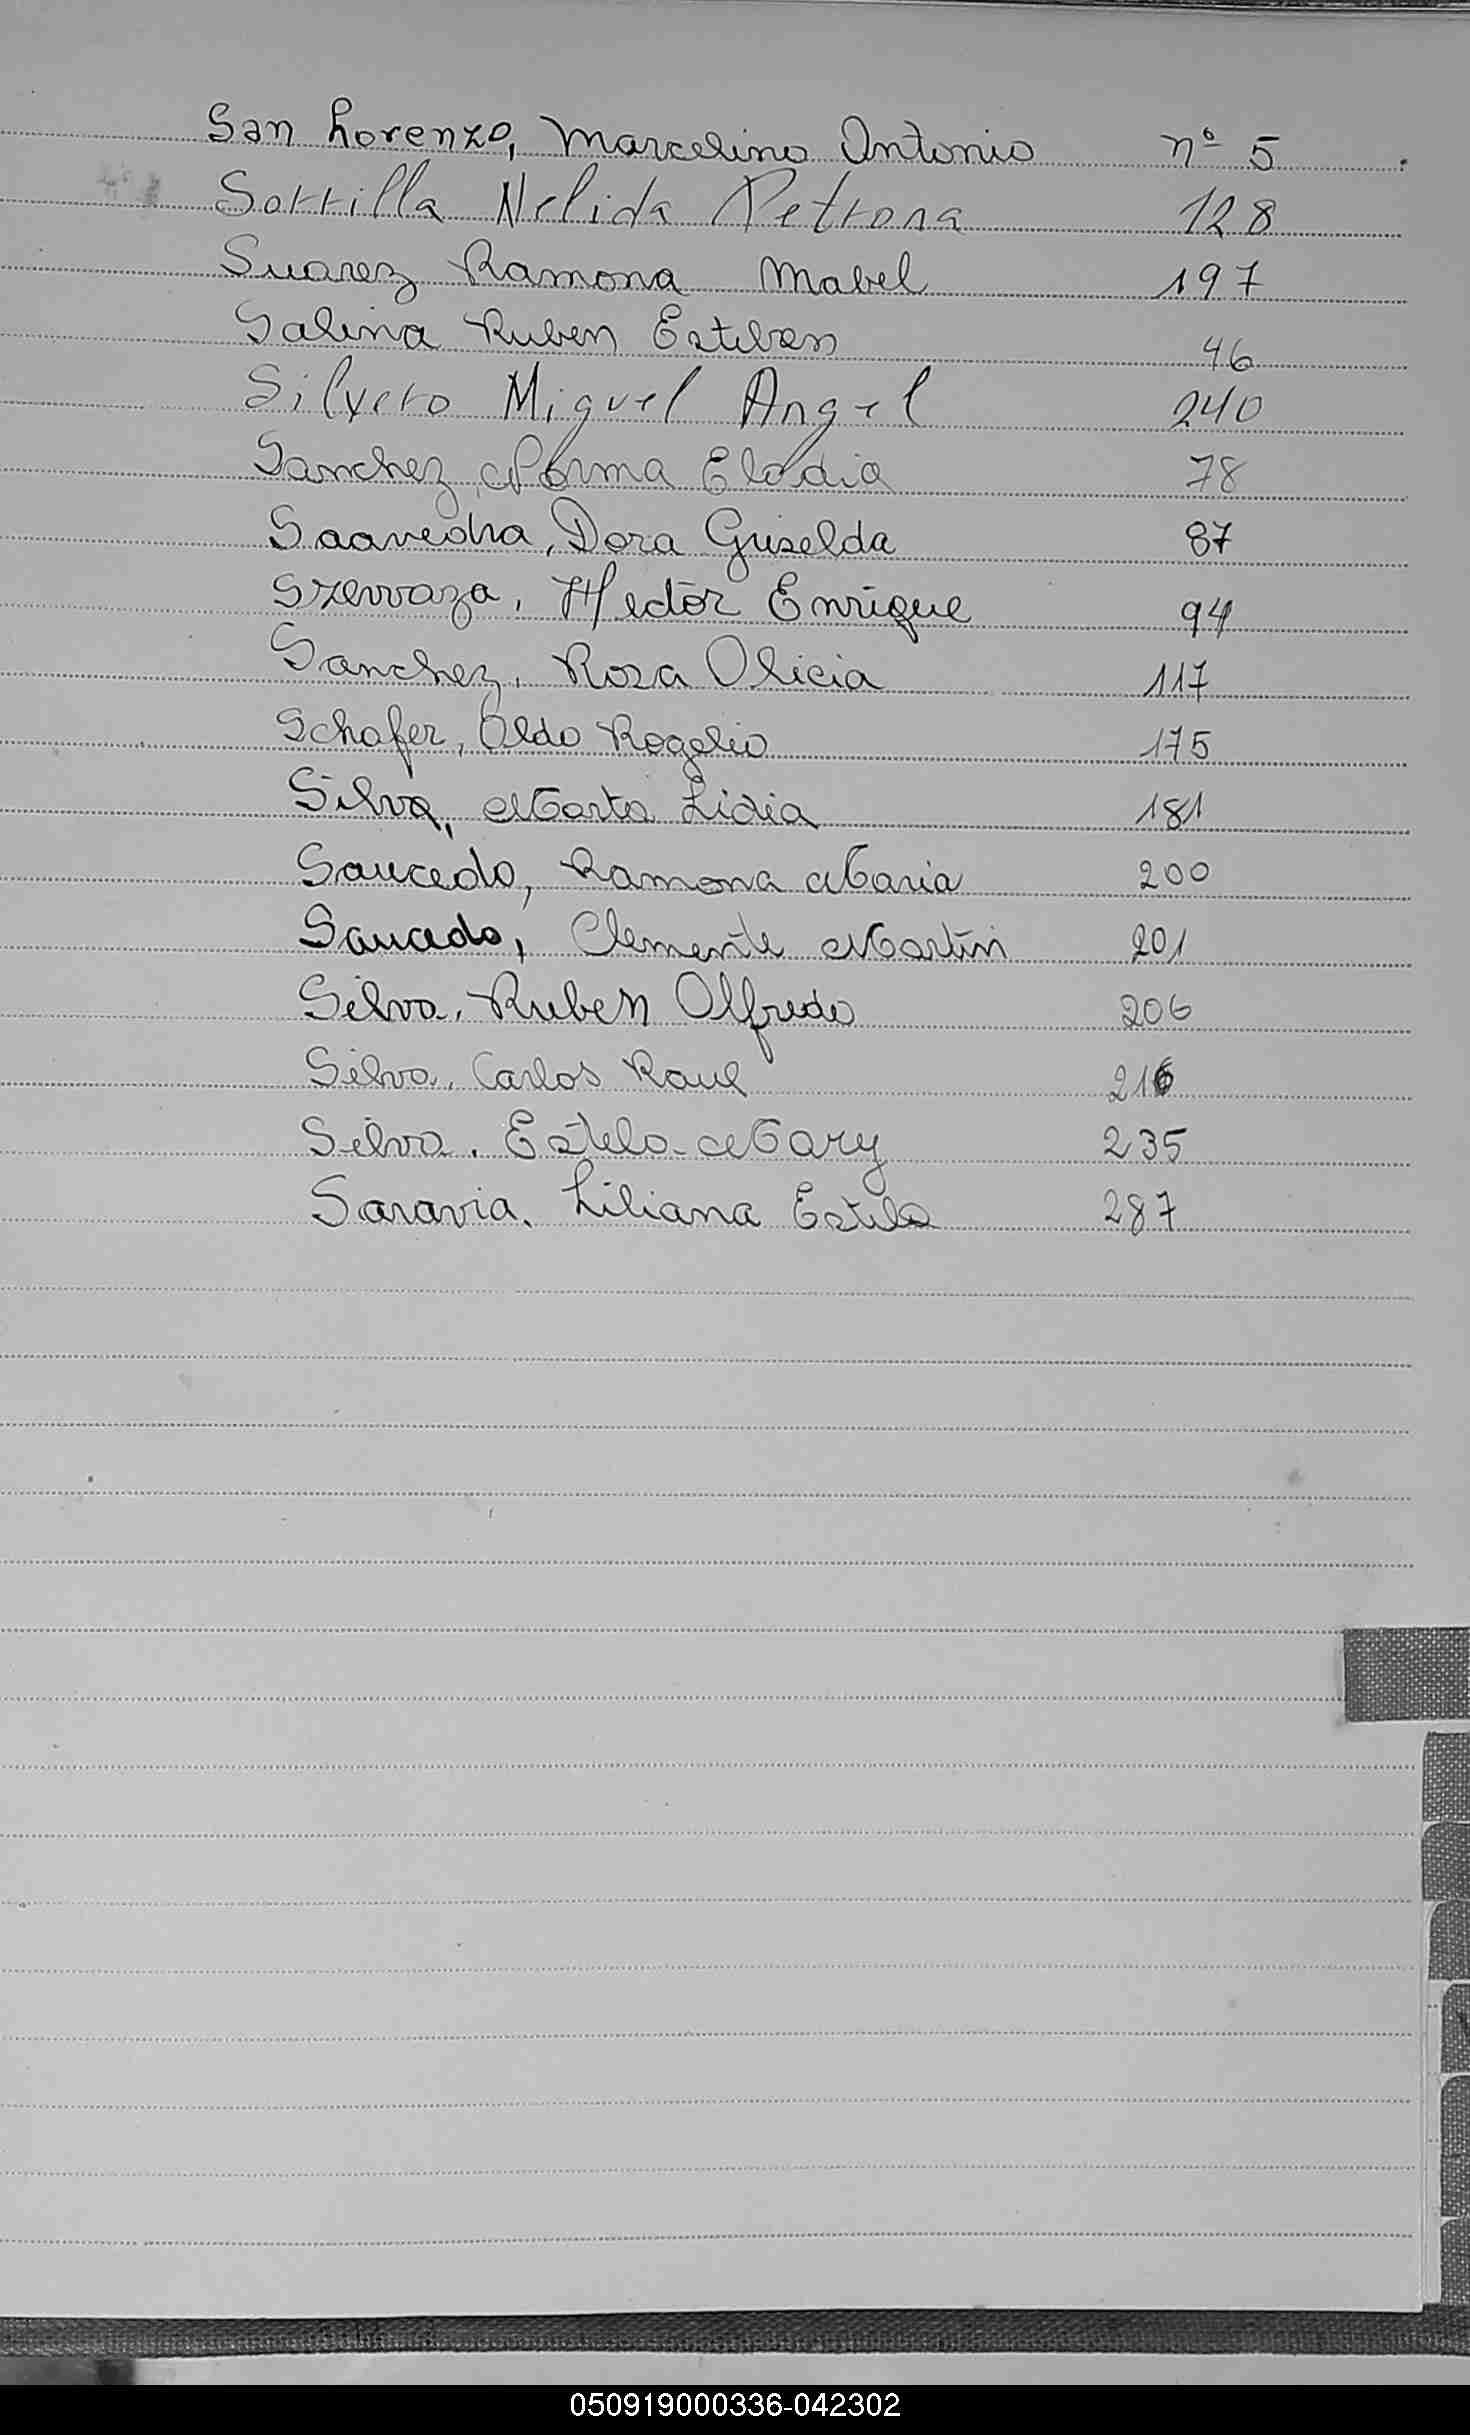 San Lorenzo, Marcelino Antonio nº 5
Sottilla Nelida Petrona 128
Suarez Ramona Mabel 197
Salina Ruben Esteban 46
Silvero Miguel Angel 240
Sanchez, Norma Elodia 78
Saavedra, Dora Griselda 87
Hector Enrique 94
Sanchez, Rosa Alicia 117
Schafer, Aldo Rogelio 175
Silva, Marta Lidia 181
Saucedo, Ramona Maria 200
Saucedo, Clemente Martin 201
Silva, Ruben Alfredo 206
Silva, Carlos Raul 216
Silva, Estela Mary 235
Saravia, Liliana Estela 287
050919000336-042302